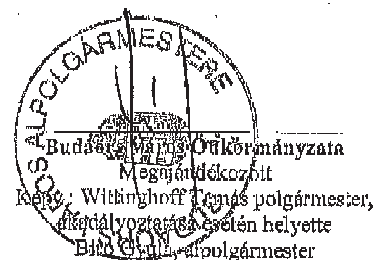 BUDAÖRS VÁROS ALPOLGÁRMESTERE
Budaörs Város Önkormányzata
Megajándékozott
Képv.: Wittinghoff Tamás polgármester,
akadályoztatása esetén helyette
Biró Gyula, alpolgármester